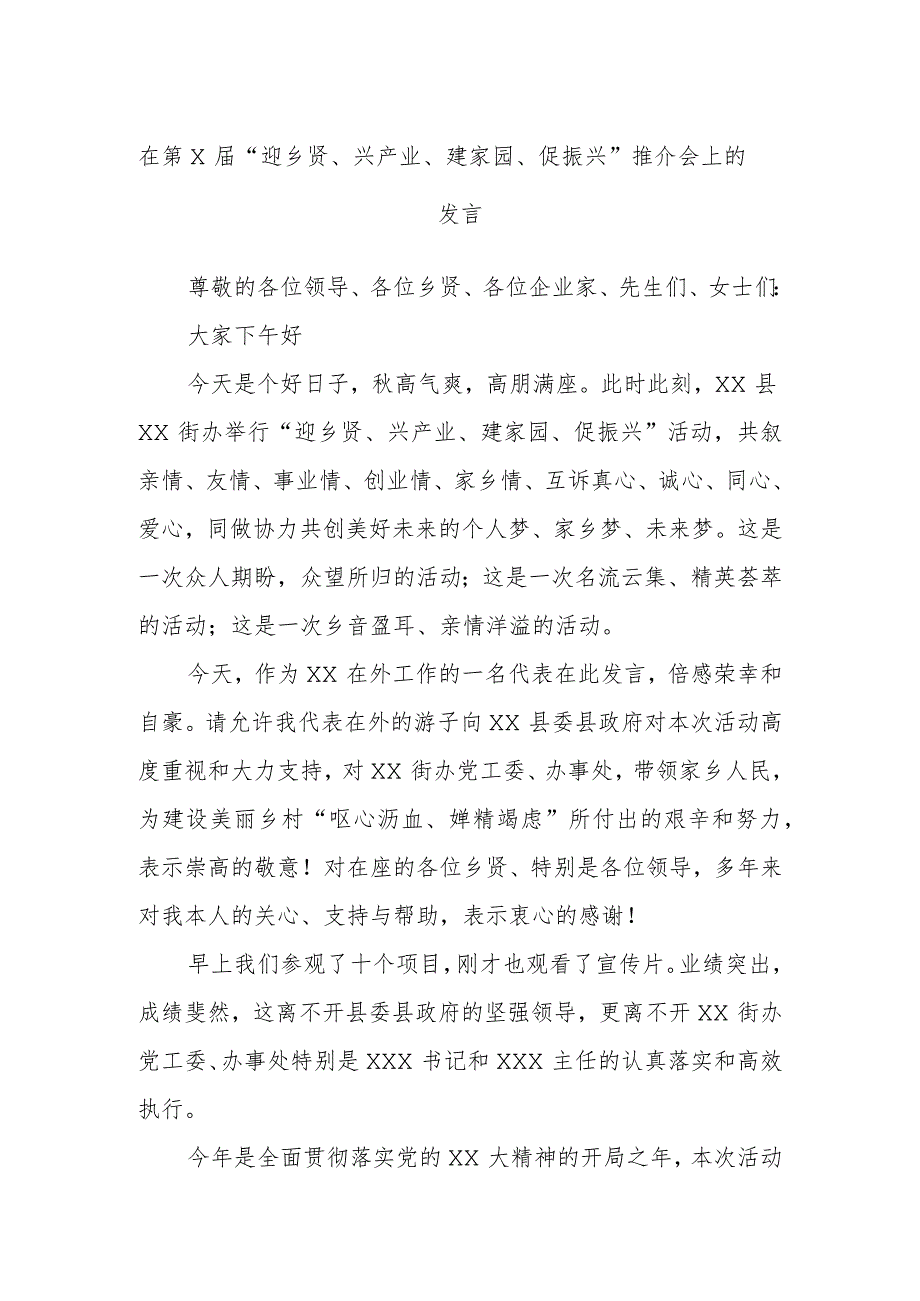 在第 X 届“迎乡贤、兴产业、建家园、促振兴”推介会上的
发言
尊敬的各位领导、各位乡贤、各位企业家、先生们、女士们：
大家下午好
今天是个好日子，秋高气爽，高朋满座。此时此刻，XX 县
XX 街办举行“迎乡贤、兴产业、建家园、促振兴”活动，共叙
亲情、友情、事业情、创业情、家乡情、互诉真心、诚心、同心、
爱心，同做协力共创美好未来的个人梦、家乡梦、未来梦。这是
一次众人期盼，众望所归的活动；这是一次名流云集、精英荟萃
的活动；这是一次乡音盈耳、亲情洋溢的活动。
今天，作为 XX 在外工作的一名代表在此发言，倍感荣幸和
自豪。请允许我代表在外的游子向 XX 县委县政府对本次活动高
度重视和大力支持，对 XX 街办党工委、办事处，带领家乡人民，
为建设美丽乡村“呕心沥血、婵精竭虑”所付出的艰辛和努力，
表示崇高的敬意！对在座的各位乡贤、特别是各位领导，多年来
对我本人的关心、支持与帮助，表示衷心的感谢！
早上我们参观了十个项目，刚才也观看了宣传片。业绩突出，
成绩斐然，这离不开县委县政府的坚强领导，更离不开 XX 街办
党工委、办事处特别是 XXX 书记和 XXX 主任的认真落实和高效
执行。
今年是全面贯彻落实党的 XX 大精神的开局之年，本次活动